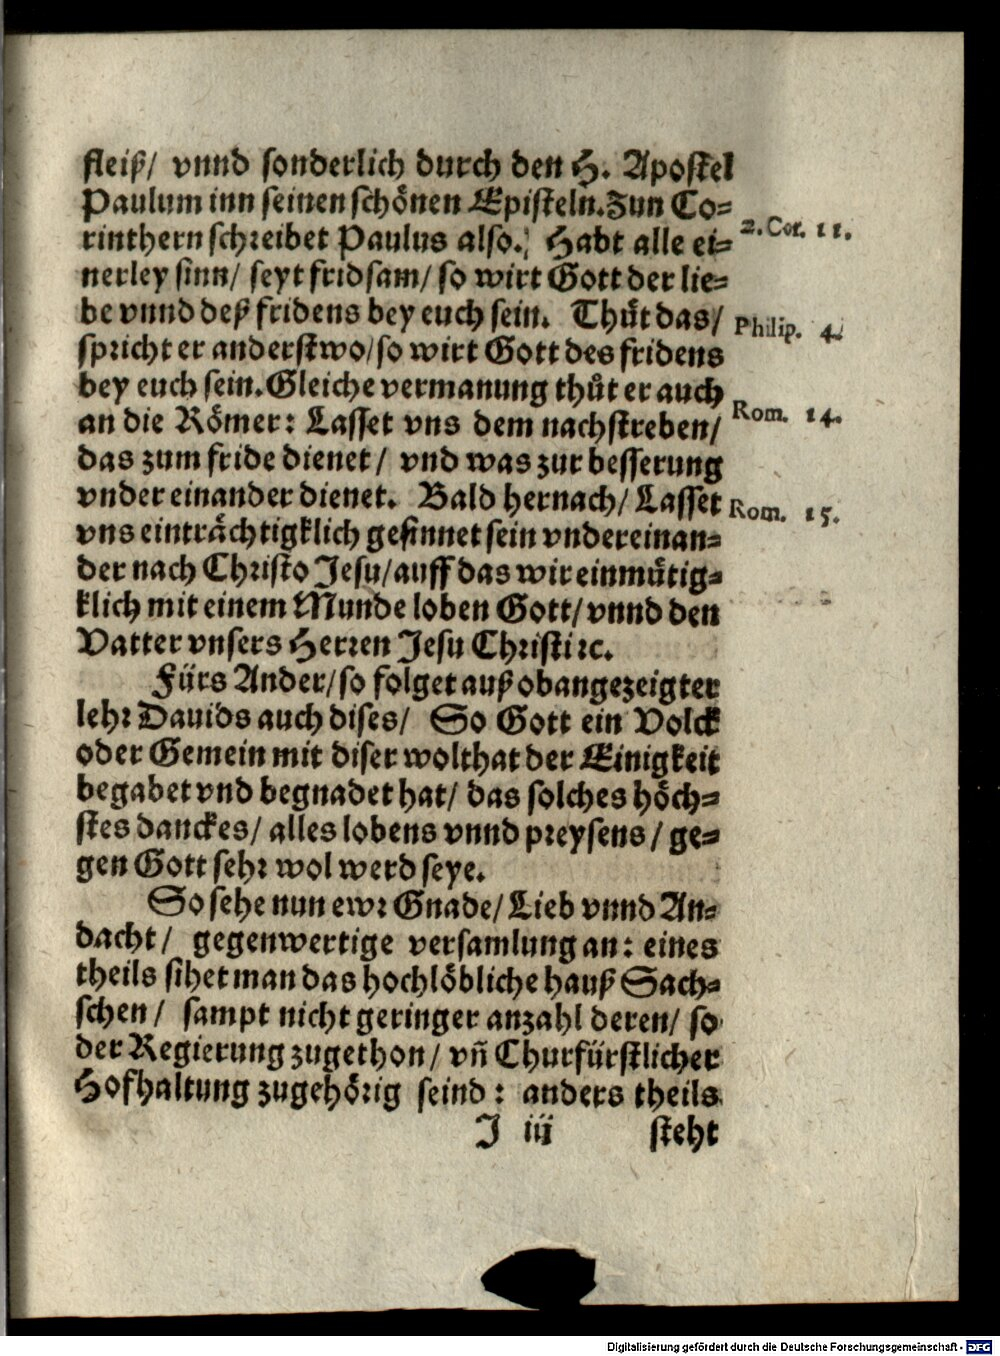 fleiß/ vnnd sonderlich durch den H. Apostel
Paulum inn seinen schönen Episteln. Zun Co⸗
rinthern schreibet Paulus also. Habt alle ei⸗ 2. Cor. 11.
nerley sinn/ seyt fridsam/ so wirt Gott der lie⸗
be vnnd deß fridens bey euch sein. Thůt das/ Philip. 4.
spricht er anderstwo/ so wirt Gott des fridens
bey euch sein. Gleiche vermanung thůt er auch
an die Römer: Lasset vns dem nachstreben/ Rom. 14.
das zum fride dienet/ vnd was zur besserung
vnder einander dienet. Bald hernach/ Lasset Rom. 15.
vns einträchtigklich gesinnet sein vndereinan⸗
der nach Christo Jesu/ auff das wir einmütig⸗
klich mit einem Munde loben Gott/ vnnd den
Vatter vnsers Herren Jesu Christi ꝛc.
Fürs Ander/ so folget auß obangezeigter
lehr Dauids auch dises/ So Gott ein Volck
oder Gemein mit diser wolthat der Einigkeit
begabet vnd begnadet hat/ das solches höch⸗
stes danckes/ alles lobens vnnd preysens/ ge⸗
gen Gott sehr wol werd seye.
So sehe nun ewr Gnade/ Lieb vnnd An⸗
dacht/ gegenwertige versamlung an: eines
theils sihet man das hochlöbliche hauß Sach⸗
schen/ sampt nicht geringer anzahl deren/ so
der Regierung zugethon/ vñ Churfürstlicher
Hofhaltung zugehörig seind: anders theils
J iij steht
Digitalisierung gefördert durch die Deutsche Forschungsgemeinschaft - DFG